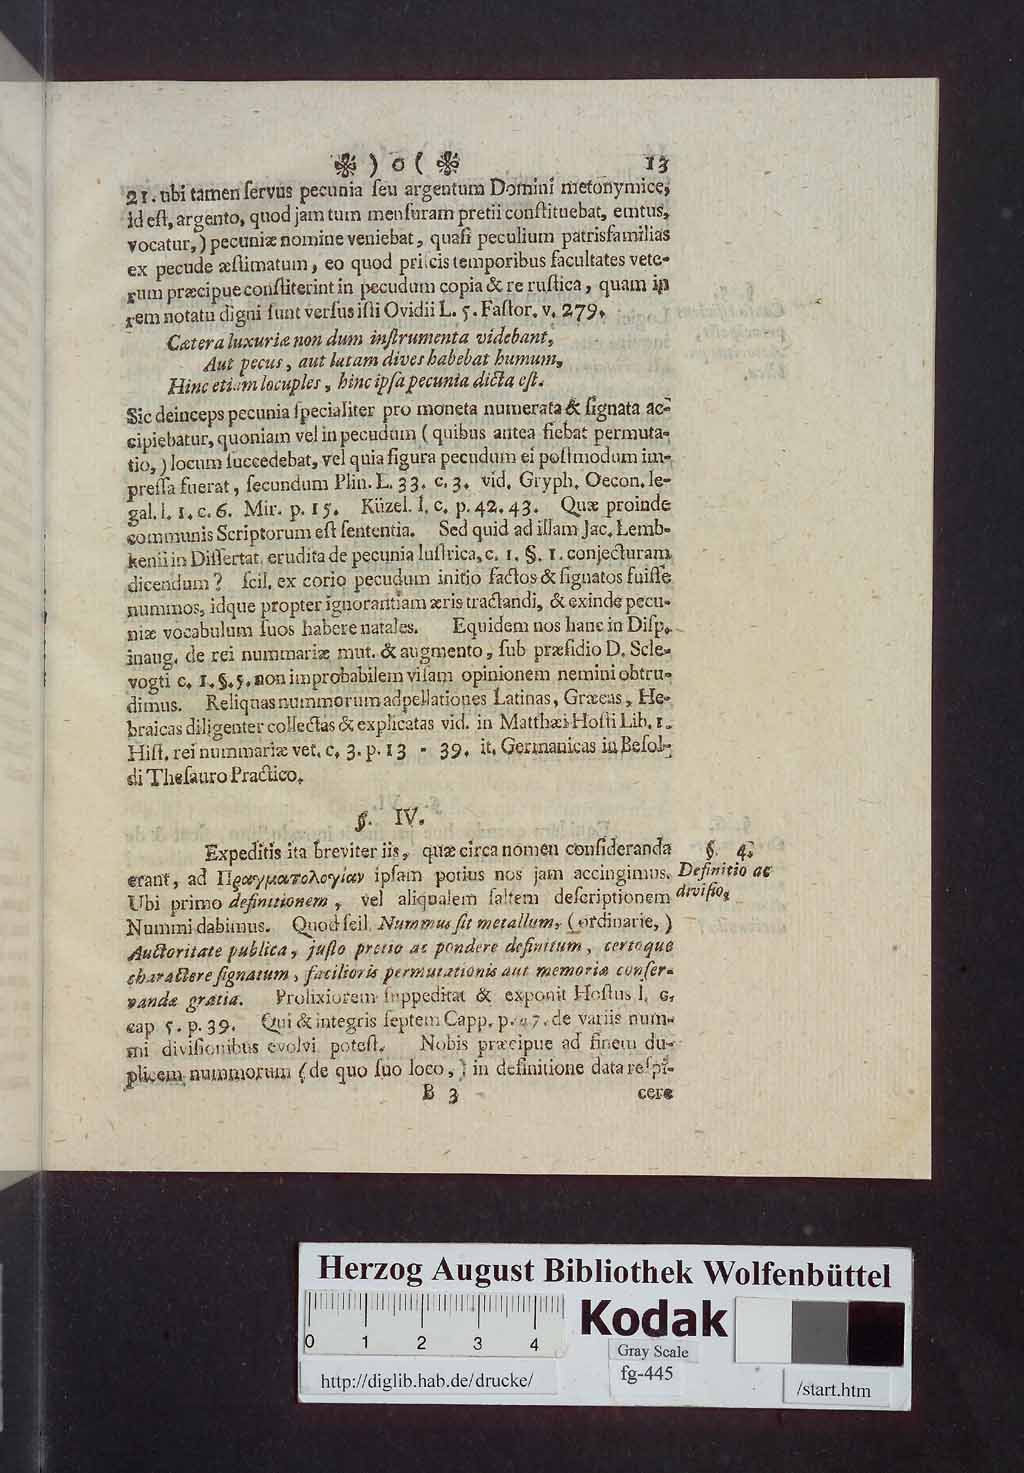 ) o ( 13
21. ubi tamen ſervus pecunia ſeu argentum Domini metonymice,
id eſt, argento, quod jam tum menſuram pretii conſtituebat, emtus,
vocatur,) pecuniæ nomine veniebat, quaſi peculium patrisfamilias
ex pecude æſtimatum, eo quod priſcis temporibus facultates vete-
rum præcipue conſliterint in pecudum copia & re ruſtica, quam in
rem notatu digni ſunt verſus iſti Ovidii L. 5. Faſtor. v. 279.
Cætera luxuriæ non dum inſtrumenta videbant,
Aut pecus, aut latam dives habebat humum,
Hinc etiam locuples, hinc ipſa pecunia dicta eſt.
Sic deinceps pecunia ſpecialiter pro moneta numerata & ſignata ac-
cipiebatur, quoniam vel in pecudum (quibus antea fiebat permuta-
tio,) locum ſuccedebat, vel quia figura pecudum ei poſtmodum im-
preſſa fuerat, ſecundum Plin. L. 33. c. 3. vid. Gryph. Oecon. le-
gal. l. 1. c. 6. Mir. p. 15. Küzel. l. c. p. 42. 43. Quæ proinde
communis Scriptorum eſt ſententia. Sed quid ad illam Jac. Lemb-
kenii in Diſſertat. erudita de pecunia luſtrica, c. 1. §. 1. conjecturam
dicendum? ſcil. ex corio pecudum initio factos & ſignatos fuiſſe
nummos, idque propter ignorantiam æris tractandi, & exinde pecu-
niæ vocabulum ſuos habere natales. Equidem nos hanc in Diſp.
inaug. de rei nummariæ mut. & augmento, ſub præſidio D. Scle-
vogti c. 1. §. 5. non improbabilem viſam opinionem nemini obtru-
dimus. Reliquas nummorum adpellationes Latinas, Græcas, He-
braicas diligenter collectas & explicatas vid. in Matthæi Hoſti Lib. 1.
Hiſt. rei nummariæ vet. c. 3. p. 13 - 39. it. Germanicas in Beſol-
di Theſauro Practico.
§. IV.
Expeditis ita breviter iis, quæ circa nomen conſideranda
erant, ad Πραγματολογίαν ipſam potius nos jam accingimus.
Ubi primo definitionem, vel aliqualem ſaltem deſcriptionem
Nummi dabimus. Quod ſcil. Nummus ſit metallum, (ordinarie,)
Auctoritate publica, juſto pretio ac pondere definitum, certoque
charactere ſignatum, facilioris permutationis aut memoriæ conſer-
vandæ gratia. Prolixiorem ſuppeditat & exponit Hoſtus l. c.
cap 5. p. 39. Qui & integris ſeptem Capp. p. 47. de variis num-
mi diviſionibus evolvi poteſt. Nobis præcipue ad finem du-
plicem nummorum (de quo ſuo loco,) in definitione data reſpi-
B 3 cere
§. 4.
Definitio ac
diviſio.
Herzog August Bibliothek Wolfenbüttel
0 1 2 3 4
Kodak
Gray Scale
fg-445
http://diglib.hab.de/drucke/
/start.htm